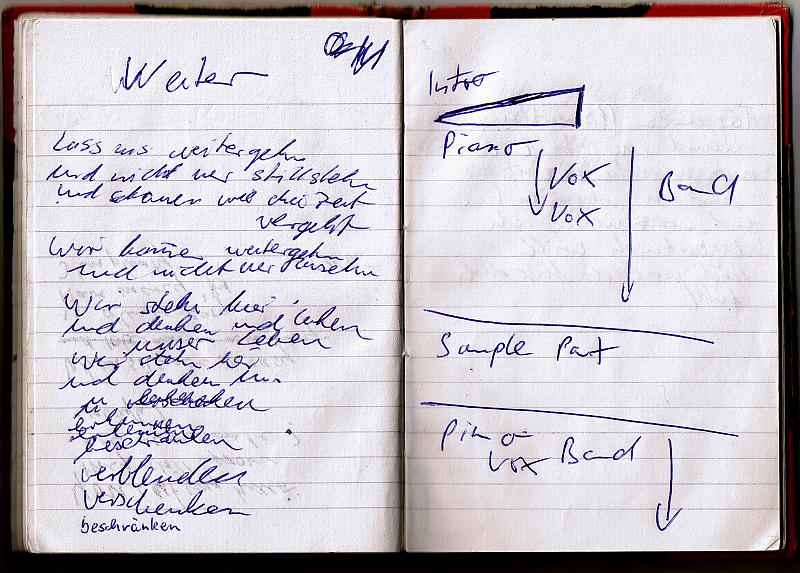 Weiter
Lass uns weitergehn
und nicht nur stillstehn
und schauen wie die Zeit
vergeht
Wir können weitergehn
und nicht nur zusehn
Wir stehn hier
und denken und leben
unser Leben
Wir stehn hier
und denken nur
zu
erkennen
beschränken
verblenden
verschenken
beschränken
Intro
Piano
VOX
VOX
Band
Sample Part
Piano
VOX Band